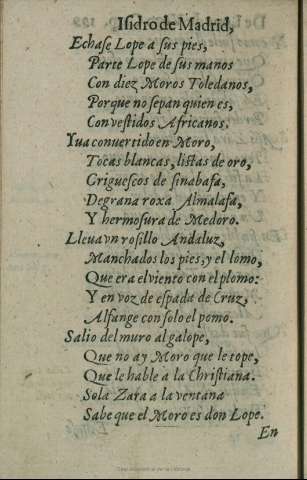 Isidro de Madrid,
Echase Lope a sus pies,
Parte Lope de sus manos
Con diez Moros Toledanos,
Porque no sepan quien es,
Con vestidos Africanos.
Yua conuertido en Moro,
Tocas blancas, listas de oro,
Griguescos de sinabafa,
De grana roxa Almalafa,
Y hermosura de Medoro.
Lleua vn rosillo Andaluz,
Manchados los pies, y el lomo,
Que era el viento con el plomo:
Y en voz de espada de Cruz,
Alfange con solo el pomo.
Salio del muro al galope,
Que no ay Moro que le tope,
Que le hable a la Christiana.
Sola Zara a la ventana
Sabe que el Moro es don Lope.
En